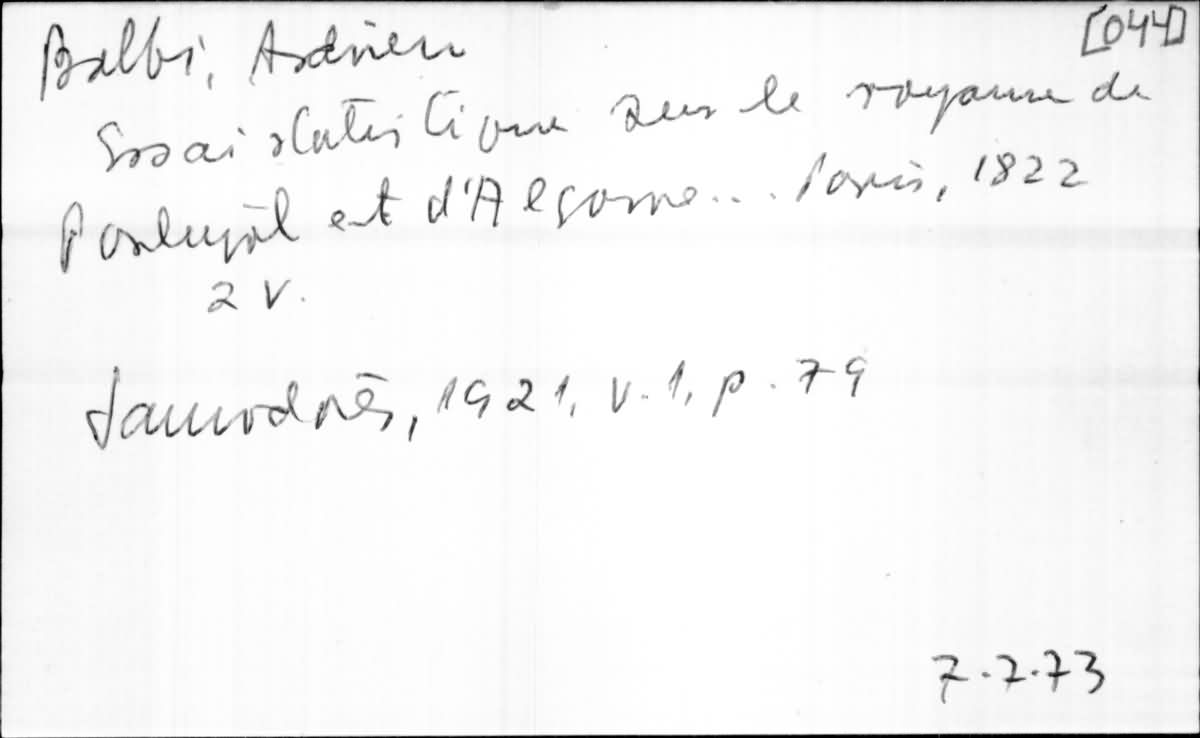 [044]
Balbi, Adrien
Essai statistique sur le royaume de
Portugal et d'Algarve... Paris, 1822
2 v.
1921, v.1, p. 79
7.7.73